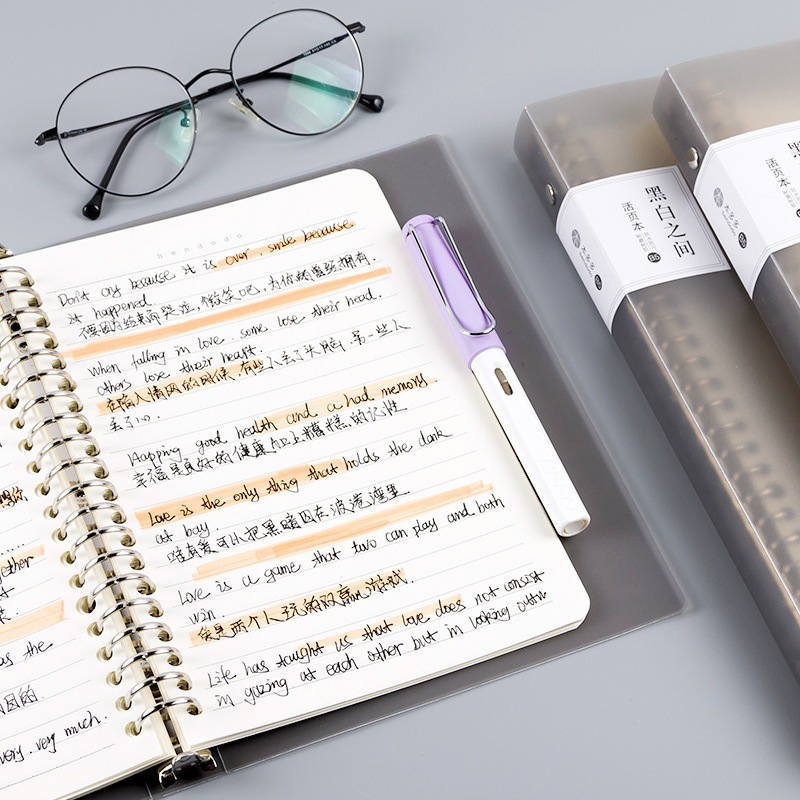 bendodo
Don't cry because it is over, smile because
it happened.
不要因为结束而哭泣,微笑吧,为你的曾经拥有.
When falling in love, some lose their head.
others lose their heart.
在陷入情网的时候,有些人丢了头脑,另一些人
丢了心.
Happing good health and a had memory.
幸福是良好的健康加上糟糕的记性
Love is the only thing that holds the dark
at bay.
唯有爱可以把黑暗囚在
Love is a game that two can play and both
win.
爱是两个人玩的双赢游戏.
Life has stought us that love does not consist
in gazing at each other but in looking
ether
as the
very. very much.
黑白之间
活页本
B5
黑
活页本
B5